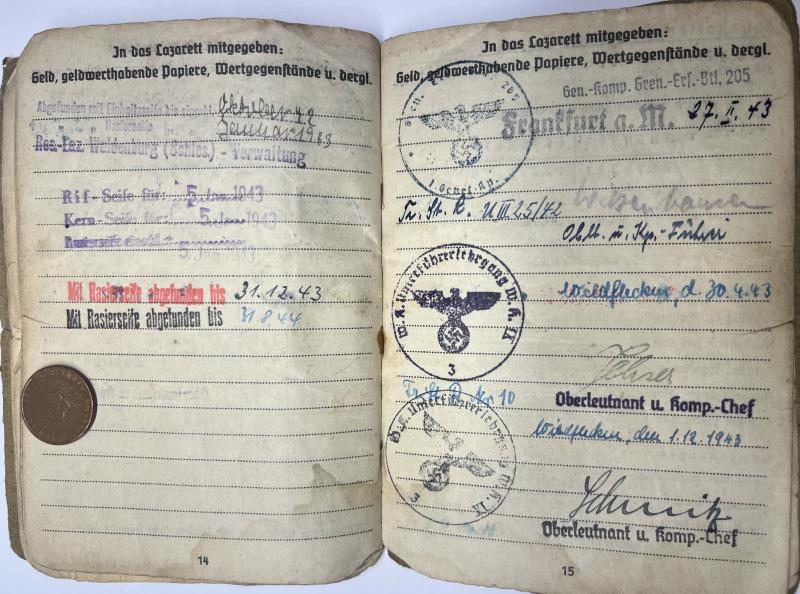 In das Lazarett mitgegeben:
Geld, geldwerthabende Papiere, Wertgegenstände u. dergl.
Abgefunden mit Einheitsseife bis einschl. Oktober 42
Rasierseife Januar 1943
Res.-Laz. Waldenburg (Schles) - Verwaltung
Rif-Seife für 5. Jan. 1943
Kern-Seife für 5. Jan. 1943
5. Jan. 1943
Mit Rasierseife abgefunden bis 31.12.43
Mit Rasierseife abgefunden bis 31.8.44
14
In das Lazarett mitgegeben:
Geld, geldwerthabende Papiere, Wertgegenstände u. dergl.
Gen.-Komp. Gren.-Ers.-Btl. 205
Frankfurt a. M. 27. II. 43
205
Tr. St. R. U III 25/42
Oblt. u. Kp.-Führer
W.K. Unterführerlehrgang W.K. IX
3
Wildflecken, d. 30.4.43
Oberleutnant u. Komp.-Chef
Tr. St. R. Nr. 10
Wildflecken, den 1.12.1943
Unterführerlehrgang W.K. IX
3
Schmitz
Oberleutnant u. Komp.-Chef
15